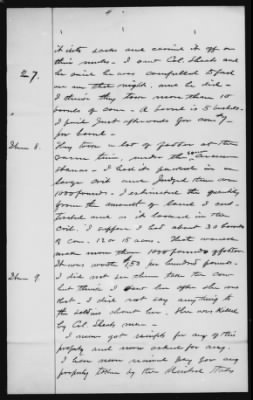 it into sacks and carried it off on
their mules. I saw Col. Sheets and
he said he was compelled to feed
on me that night, and he did.
27. I think they took more than 10
barrels of corn. A barrel is 5 bushels.
I paid just afterwards for corn
per barrel.
Item 8. They took a lot of fodder at the
same time, under the same circum
stances. I had it packed in
and Judged them over
1000 pounds. I estimated the quantity
from the amount of land I
and as it loosed in the
I suppose I had about 30 barrels
of corn. 12 or 15 acres. That would
make more than 1000 pounds of fodder.
It was worth 1.50 per hundred pounds.
Item 9. I did not see them take the cow
but think I saw her after she was
shot. I did not say anything to
the soldiers about her. She was Killed
by Col Sheets men
I never got receipts for any of this
property and never asked for any.
I have never received pay for any
property taken by the United States